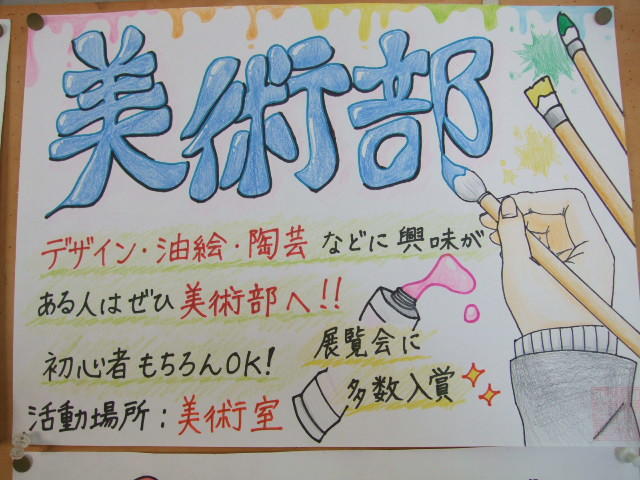 美術部
デザイン・油絵・陶芸 などに興味が
ある人はぜひ 美術部へ!!
初心者もちろんOK!
展覧会に
多数入賞
活動場所:美術室